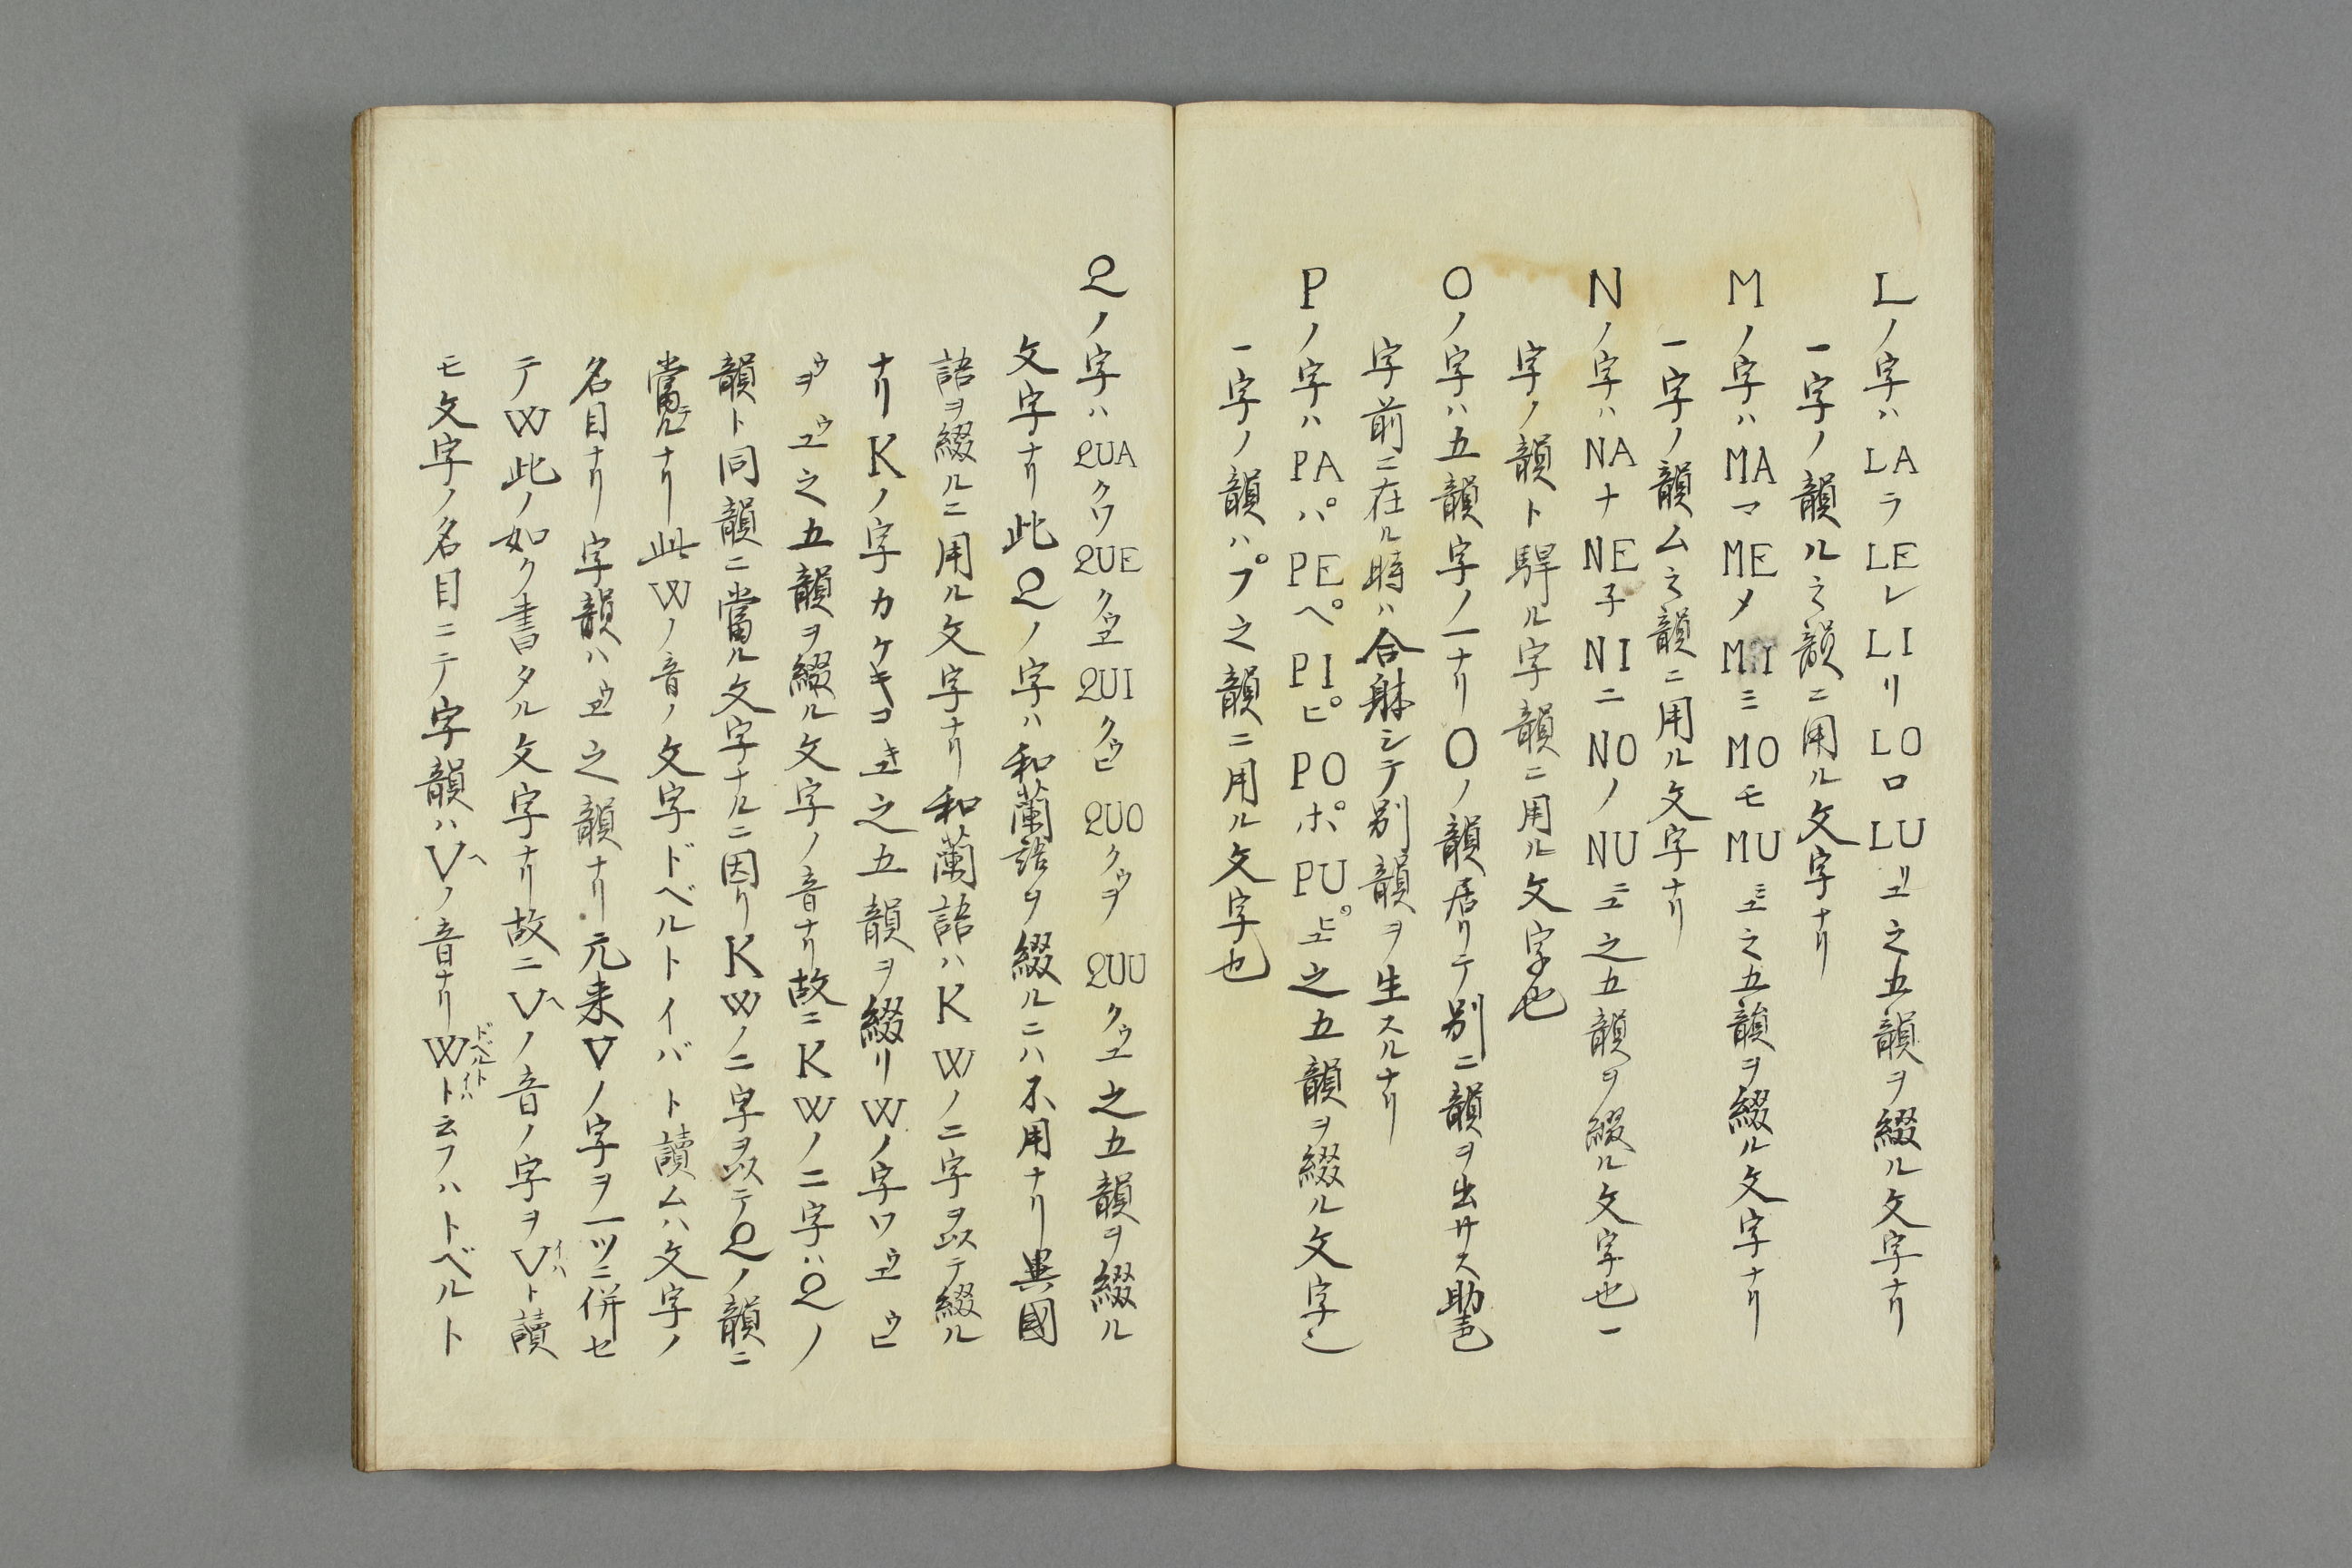 Lノ字ハLAラLEレLIリLOロLUリユ之五韻ヲ綴ル文字ナリ
一字ノ韻ル之韻ニ用ル文字ナリ
Mノ字ハMAマMEメMIミMOモMUミユ之五韻ヲ綴ル文字ナリ
一字ノ韻ム之韻ニ用ル文字ナリ
Nノ字ハNAナNE子NIニNOノNUニユ之五韻ヲ綴ル文字也一
字ノ韻ト騨ル字韻ニ用ル文字也
Oノ字ハ五韻字ノ一ナリOノ韻居リテ別ニ韻ヲ出サス助色
字前ニ在ル時ハ合躰シテ別韻ヲ生スルナリ
Pノ字ハPAパPEペPIピPOポPUピユ之五韻ヲ綴ル文字也
一字ノ韻ハプ之韻ニ用ル文字也
Qノ字ハQUAクワQUEクウエQUIクウヒQUOクウヲQUUクウユ之五韻ヲ綴ル
文字ナリ此Qノ字ハ和蘭語ヲ綴ルニハ不用ナリ異國
語ヲ綴ルニ用ル文字ナリ和蘭語ハKWノ二字ヲ以テ綴ル
ナリKノ字カケキコキユ之五韻ヲ綴リWノ字ワウエウヒ
ウヲウユ之五韻ヲ綴ル文字ノ音ナリ故ニKWノ二字ハQノ
韻ト同韻ニ當ル文字ナルニ因リKWノ二字ヲ以テQノ韻ニ
當テルナリ此Wノ音ノ文字ドベルトイバト讀ムハ文字ノ
名目ナリ字韻ハウユ之韻ナリ元来Vノ字ヲ一ツニ併セ
テW此ノ如ク書タル文字ナリ故ニVヘノ音ノ字ヲVイハト讀
モ文字ノ名目ニテ字韻ハVヘノ音ナリWドベルトイハト云フハトベルト